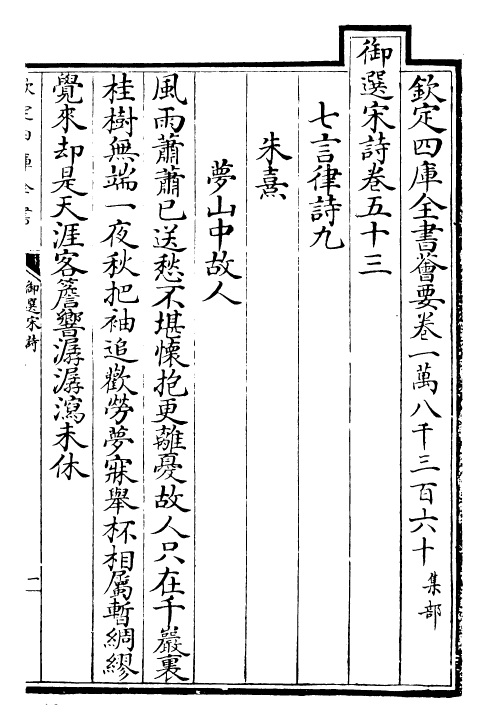 欽定四庫全書薈要卷一萬八千三百六十 集部
御選宋詩卷五十三
七言律詩九
朱熹
夢山中故人
風雨蕭蕭已送愁不堪懐抱更離憂故人只在千巖裏
桂樹無端一夜秋把袖追歡勞夢寐舉杯相屬暫綢繆
覺來却是天涯客簷響潺潺瀉未休
欽定四庫全書
御選宋詩